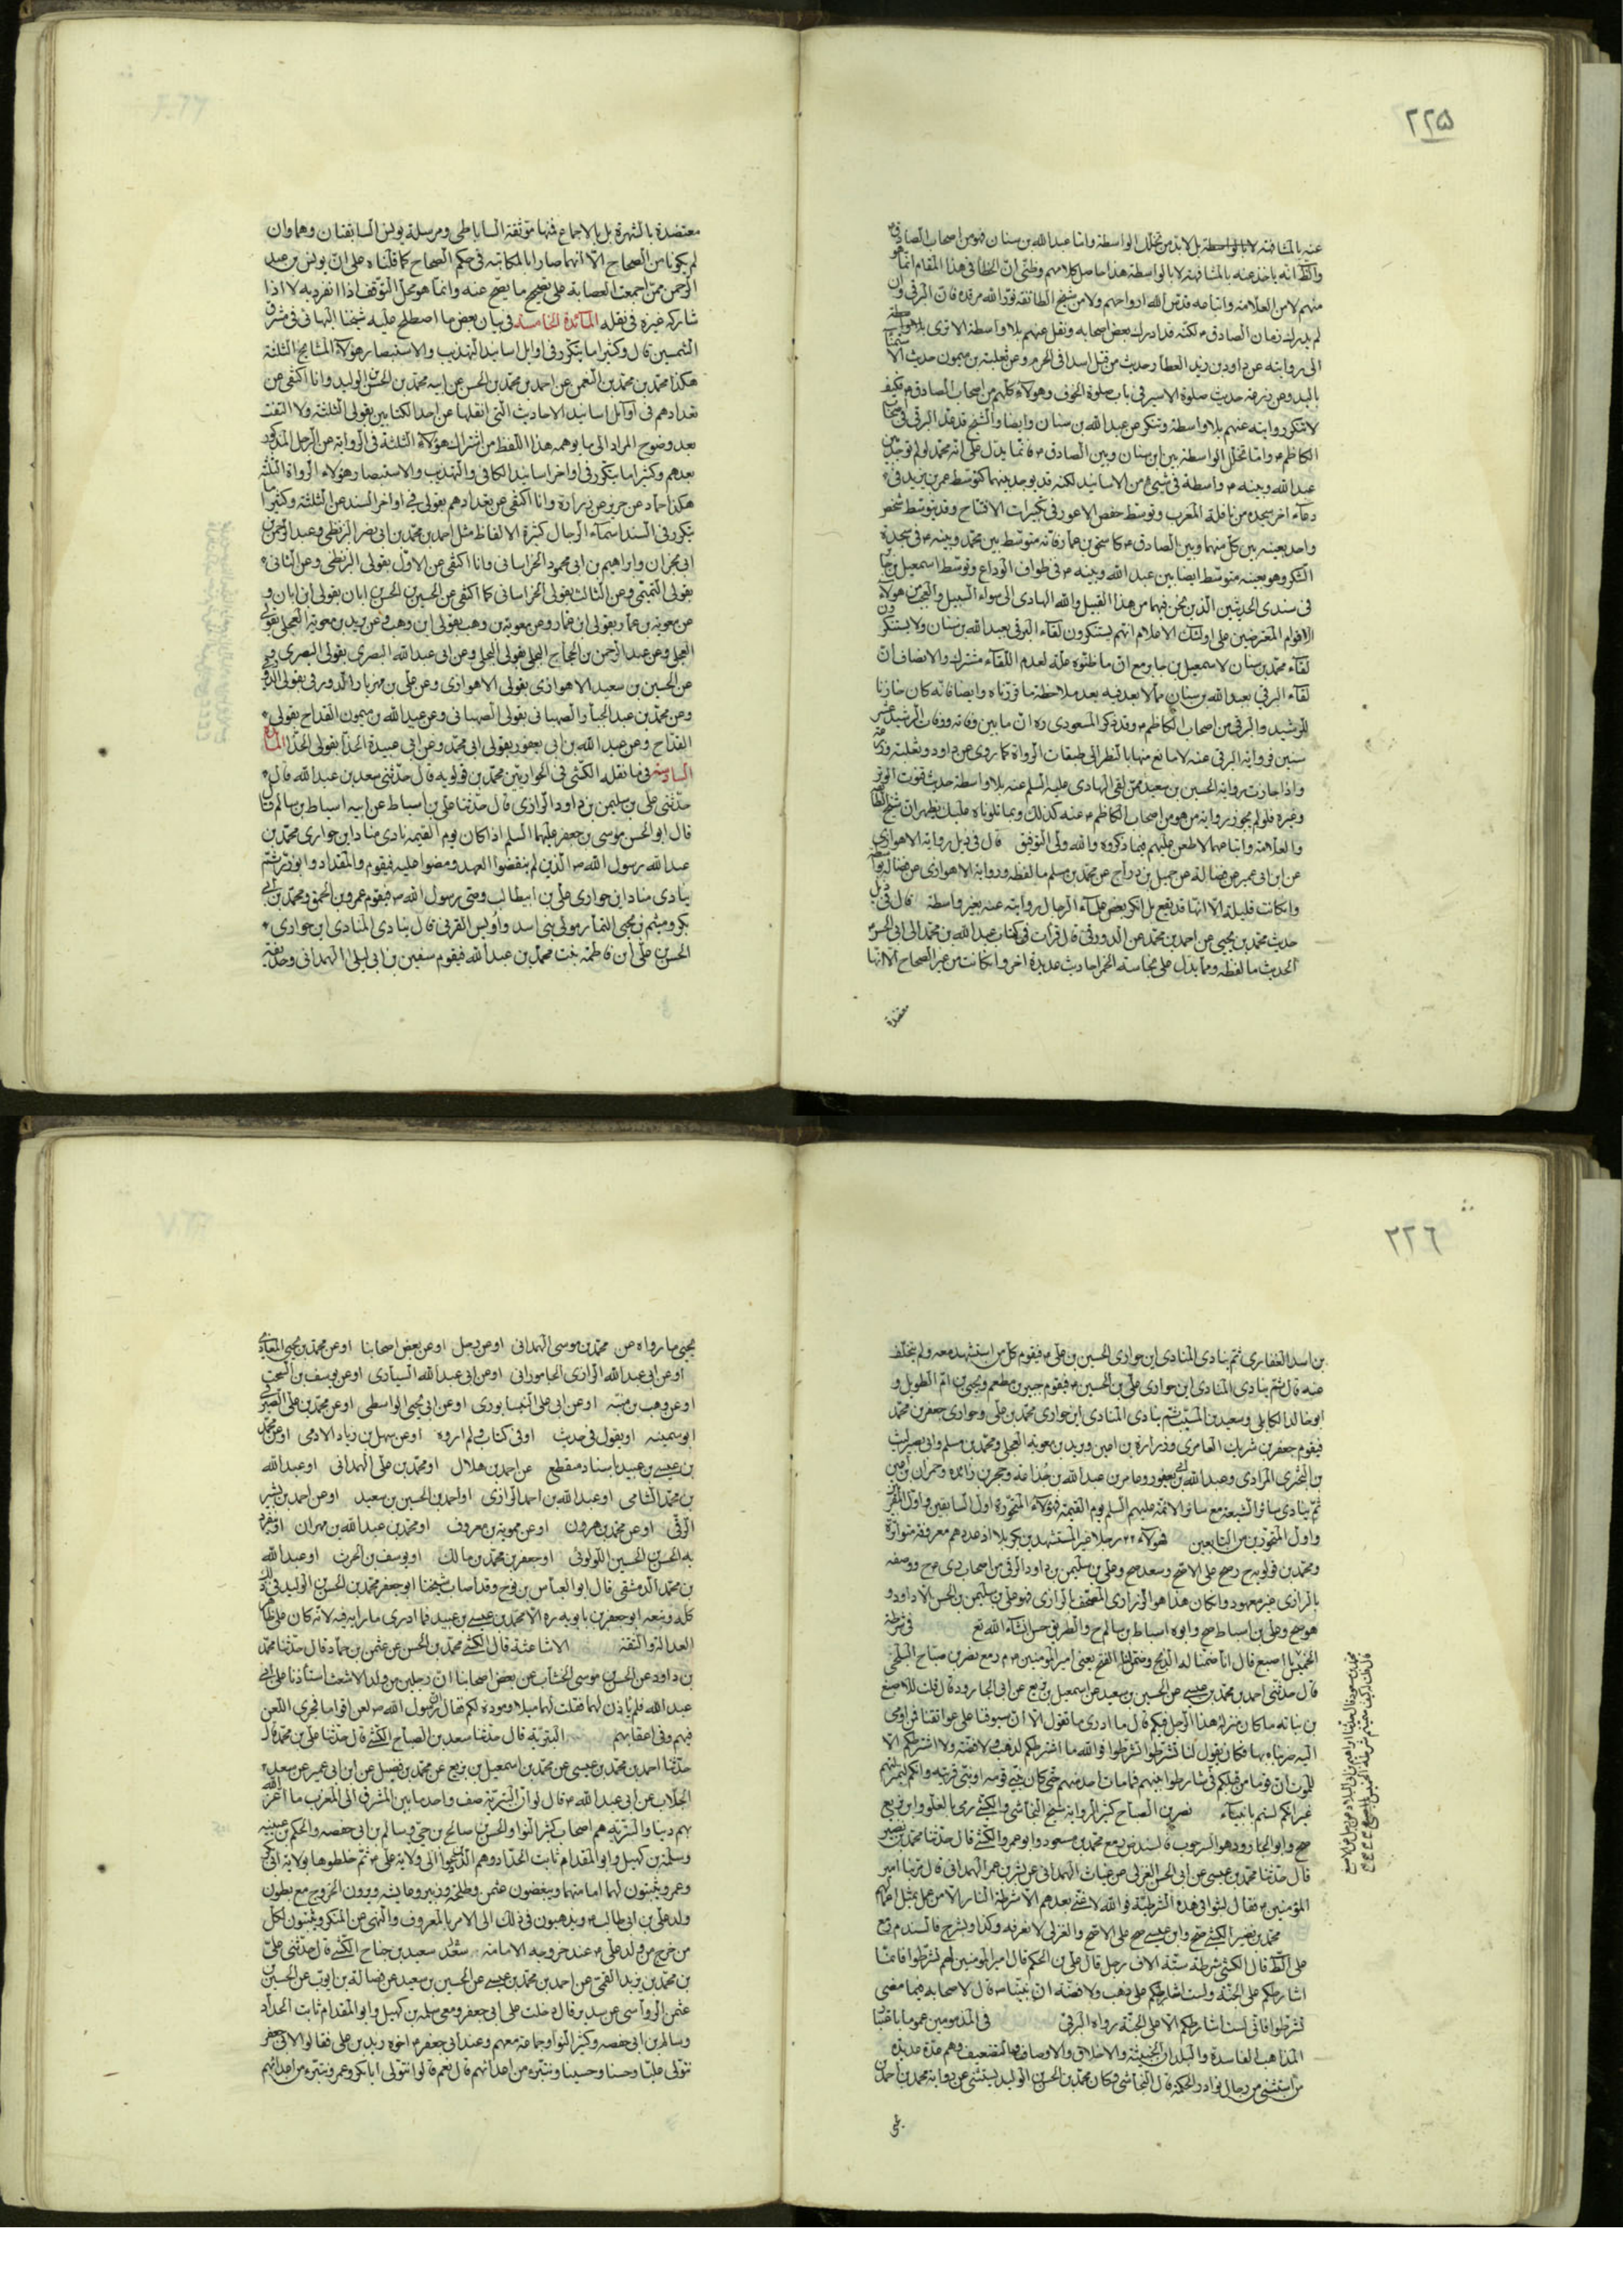 ٢٢٥
عنه بالمشافهة لا بالواسطة بل لابد من تخلل الواسطة واما عبد الله بن سنان فهو من اصحاب الصادق م
والظ انه ياخذ عنه بالمشافهة لا بالواسطة هذا حاصل كلامهم وظني ان الخطا في هذا المقام انما هو
منهم لا من العلامة واتباعه قدس الله ارواحهم ولا من شيخ الطائفة نور الله مرقده فان البرقي وان
لم يدرك زمان الصادق م لكنه قد ادرك بعض اصحابه ونقل عنهم بلا واسطة الا ترى بلا واسطة
الى روايته عن داود بن زيد العطار حديث من قتل اسدا في الحرم وعن ثعلبة بن ميمون حديث الاستمناء
باليد وعن زرعة حديث صلوة الاسير في باب صلوة الخوف وهولاء كلهم من اصحاب الصادق م فكيف
لا تنكر روايته عنهم بلا واسطة وتنكر عن عبد الله بن سنان وايضا والشيخ قد عد البرقي في اصحاب
الكاظم م واما تخلل الواسطة بين ابن سنان وبين الصادق م فانما يدل على انه محمد لو لم توجد بين
عبد الله وبينه م واسطة في شيء من الاسانيد لكنه قد يوجد بينهما كتوسط عمر بن يزيد في
دعاء اخر سجدة من نافلة المغرب وتوسط حفص الاعور في تكبيرات الافتتاح وقد يتوسط شخص
واحد بعينه بين كل منهما وبين الصادق م كاسحق بن عمار فانه متوسط بين محمد وبينه م في سجدة
الشكر وهو بعينه متوسط ايضا بين عبد الله وبينه م في طواف الوداع وتوسط اسمعيل بن جابر
في سندي الحديثين الذين نحن فيهما من هذا القبيل والله الهادي الى سواء السبيل والعجب من هولاء
الاقوام المعترضين على اولئك الاعلام انهم يستنكرون لقاء البرقي بعبد الله بن سنان ولا يستنكرون
لقاء محمد بن سنان لاسمعيل بن جابر مع ان ما ظنوه علة لعدم اللقاء مشترك والانصاف ان
لقاء البرقي بعبد الله بن سنان مما لا بعد فيه بعد ملاحظة ما قررناه وايضا فانه كان خازنا
للرشيد والبرقي من اصحاب الكاظم م وقد ذكر المسعودي ره ان ما بين وفاته ووفات الرشيد عشر
سنين فرواية البرقي عنه لا مانع منها بالنظر الى طبقات الرواة كما روى عن داود وثعلبة وزرعة
واذا جازت رواية الحسين بن سعيد ممن لقي الهادي عليه السلم عنه بلا واسطة حديث قنوت الوتر
وغيره فلو لم يجوز رواية من هو من اصحاب الكاظم م عنه كذلك وبما تلوناه عليك يظهر ان شيخ الطائفة
والعلامة واتباعهما لا طعن عليهم فيما ذكروه والله ولي التوفيق قال في ذيل رواية الاهوازي
عن ابن ابي عمير عن فضالة عن جميل بن دراج عن محمد بن مسلم ما لفظه ورواية الاهوازي عن فضالة بلا واسطة
وان كانت قليلة الا انها قد تقع بل انكر بعض علماء الرجال روايته عنه بغير واسطة قال في ذيل
حديث محمد بن يحيى عن احمد بن محمد عن الدورقي قال قرات في كتاب عبد الله بن محمد الى ابي الحسن م
الحديث ما لفظه ومما يدل على نجاسة الخمر احاديث عديدة اخر وان كانت من غير الصحاح الا انها
معتضدة
معتضدة بالشهرة بل بالاجماع منها موثقة الساباطي ومرسلة يونس السابقتان وهما وان
لم يكونا من الصحاح الا انهما صارا بالمكاتبة في حكم الصحاح كما قلناه على ان يونس بن عبد
الرحمن ممن اجمعت العصابة على تصحيح ما يصح عنه وانما هو محل التوقف اذا انفرد به لا اذا
شاركه غيره في نقله المائدة الخامسة في بيان بعض ما اصطلح عليه شيخنا البهائي في مشرق
الشمسين قال وكثيرا ما يتكرر في اوايل اسانيد التهذيب والاستبصار هولاء المشايخ الثلثة
هكذا محمد بن محمد بن النعمن عن احمد بن محمد بن الحسن عن ابيه محمد بن الحسن بن الوليد وانا اكتفي عن
تعدادهم في اوآئل اسانيد الاحاديث التي انقلها عن احد الكتابين بقولي الثلثة ولا التفت
بعد وضوح المراد الى ما يوهمه هذا اللفظ من اشتراك هولاء الثلثة في الرواية عن الرجل المذكور
بعدهم وكثيرا ما يتكرر في اواخر اسانيد الكافي والتهذيب والاستبصار هولاء الرواة الثلثة
هكذا حماد عن حريز عن زرارة وانا اكتفي عن تعدادهم بقولي في اواخر السند عن الثلثة وكثيرا ما
يتكرر في السند اسماء الرجال كثيرة الالفاظ مثل احمد بن محمد بن ابي نصر البزنطي وعبد الرحمن بن
ابي نجران وابراهيم بن ابي محمود الخراساني وانا اكتفي عن الاول بقولي البزنطي وعن الثاني
بقولي التميمي وعن الثالث بقولي الخراساني كما اكتفي عن الحسين بن الحسن بن ابان بقولي ابن ابان و
عن معوية بن عمار بقولي ابن عمار وعن معوية بن وهب بقولي ابن وهب وعن بريد بن معوية العجلي بقولي
العجلي وعن عبد الرحمن بن الحجاج البجلي بقولي البجلي وعن ابي عبد الله البصري بقولي البصري و
عن الحسين بن سعيد الاهوازي بقولي الاهوازي وعن علي بن مهزيار والدورقي بقولي الدورقي
وعن محمد بن عبد الجبار الصهباني بقولي الصهباني وعن عبد الله بن ميمون القداح بقولي
القداح وعن عبد الله بن ابي يعفور بقولي ابي محمد وعن ابي عبيدة الحذا بقولي الحذا المائدة
السادسة فيما نقله الكشي في الحواريين محمد بن قولويه قال حدثني سعد بن عبد الله قال
حدثني علي بن سليمن بن داود الرازي قال حدثنا علي بن اسباط عن ابيه اسباط بن سالم قال
قال ابو الحسن موسى بن جعفر عليهما السلم اذا كان يوم القيمة نادى مناد اين حواري محمد بن
عبد الله رسول الله ص الذين لم ينقضوا العهد ومضوا عليه فيقوم والمقداد وابو ذر ثم
ينادي مناد اين حواري علي بن ابيطالب وصي رسول الله ص فيقوم عمرو بن الحمق ومحمد بن ابي
بكر وميثم بن يحيى التمار مولى بني اسد واويس القرني قال ينادي المنادي اين حواري
الحسن بن علي ابن فاطمة بنت محمد بن عبد الله فيقوم سفين بن ابي ليلى الهمداني وحذيفة
٢٢٦
بن اسد الغفاري ثم ينادي المنادي اين حواري الحسين بن علي م فيقوم كل من استشهد معه ولم يتخلف
عنه قال ثم ينادي المنادي اين حواري علي بن الحسين م فيقوم جبير بن مطعم ويحيى بن ام الطويل و
ابو خالد الكابلي وسعيد بن المسيب ثم ينادي المنادي اين حواري محمد بن علي وحواري جعفر بن محمد
فيقوم جعفر بن شريك العامري وزرارة بن اعين وبريد بن معوية العجلي ومحمد بن مسلم وابي بصير ليث
بن البختري المرادي وعبد الله بن ابي يعفور وعامر بن عبد الله بن جذاعة وحجر بن زائدة وحمران بن اعين
ثم ينادي سائر الشيعة مع سائر الائمة عليهم السلم يوم القيمة فهؤلاء المتحورة اول السابقين واول المقربين
واول المتحورين من التابعين فهولاء ٢٢ رجلا غير المستشهدين بكربلا اذ عددهم معرفته متواترة
ومحمد بن قولويه ح وصح على الاصح وسعد صح وعلي بن سليمن بن داود الرقي من اصحاب دي صح ووصفه
بالرازي غير معهود وان كان هذا هو الزراري المصحف بالرازي فهو علي بن سليمن بن الحسن لا داود و
هو صح وعلي بن اسباط صح وابوه اسباط بن سالم ح والطريق حسن انشاء الله تع في شرطة
الخميس يا اصبغ قال انا ضمنا له الذبح وضمن لنا الفتح يعني امير المؤمنين م م ومع نصر بن صباح البلخي
قال حدثني احمد بن محمد بن عيسى عن الحسين بن سعيد عن اسمعيل بن بزيع عن ابي الجارود قال قلت للاصبغ
بن نباتة ما كان منزلة هذا الرجل فيكم قال ما ادري ما تقول الا ان سيوفنا على عواتقنا فمن اومى
اليه ضربناه بها فكان يقول لنا تشرطوا تشرطوا فوالله ما اشتراطكم لذهب ولا فضة ولا اشتراطكم الا
للموت ان قوما من قبلكم تشارطوا بينهم فما مات احد منهم حتى كان نبي قومه او نبي قريته وانكم لبمنزلتهم
غير انكم لستم بانبياء نصر بن الصباح كثير الرواية شيخ النجاشي والكشي رمي بالغلو وابن بزيع
صح وابو الجارود هو السرحوب فالسند ض ومع محمد بن مسعود وابو عمرو الكشي قال حدثنا محمد بن نصير
قال حدثنا محمد بن عيسى عن ابي الحسن الغزلي عن غياث الهمداني عن بشر بن عمر الهمداني قال مر بنا امير
المؤمنين م فقال لنبوا في هذه الشرطة فوالله لا تلي بعدهم الا شرطة النار الا من عمل بمثل اعمالهم
محمد بن نصير الكشي صح وابن عيسى صح على الاصح والغزلي لا نعرفه وكذا وبشر ح فالسند م ومع
على الظ قال الكشي شرطة ستة الاف رجل قال علي بن الحكم قال امير المؤمنين لهم تشرطوا فانما
اشارطكم على الجنة ولست اشارطكم على ذهب ولا فضة ان نبينا ص قال لاصحابه فيما مضى
تشرطوا فاني لست اشارطكم الا على الجنة رواه البرقي في المذمومين عموما باعتبار
المذاهب الفاسدة والبلدان الخبيثة والاخلاق والاوصاف والتضعيف وهم عدة عديدة
من استثني من رجال نوادر الحكمة قال النجاشي وكان محمد بن الحسن بن الوليد يستثني عن رواية محمد بن احمد بن
يحيى
يحيى ما رواه عن محمد بن موسى الهمداني او عن رجل او عن بعض اصحابنا او عن محمد بن يحيى المعاذي
او عن ابي عبد الله الرازي الجاموراني او عن ابي عبد الله السياري او عن يوسف بن السخت
او عن وهب بن منبه او عن ابي علي النيسابوري او عن ابي يحيى الواسطي او عن محمد بن علي الصيرفي
ابو سمينة او يقول في حديث او في كتاب ولم اروه او عن سهل بن زياد الادمي او عن محمد
بن عيسى بن عبيد باسناد منقطع عن احمد بن هلال او محمد بن علي الهمداني او عبد الله
بن محمد الشامي او عبد الله بن احمد الرازي او احمد بن الحسين بن سعيد او عن احمد بن بشير
الرقي او عن محمد بن هرون او عن ممويه بن معروف او محمد بن عبد الله بن مهران او ينفرد
به الحسن بن الحسين اللولوئي او جعفر بن محمد بن مالك او يوسف بن الحرث او عبد الله
بن محمد الدمشقي قال ابو العباس بن نوح وقد اصاب شيخنا ابو جعفر محمد بن الحسن بن الوليد في ذلك
كله وتبعه ابو جعفر بن بابويه ره الا محمد بن عيسى بن عبيد فما ادري ما رابه فيه لانه كان على ظاهر
العدالة والثقة الاشاعثة قال الكشي محمد بن الحسن عن عثمن بن حماد قال حدثنا محمد
بن داود عن الحسن بن موسى الخشاب عن بعض اصحابنا ان رجلين من ولد الاشعث استأذنا على ابي
عبد الله فلم ياذن لهما فقلت ان لهما ميلا ومودة لكم فقال ان رسول الله ص لعن اقواما فجرى اللعن
فيهم وفي اعقابهم البترية قال حدثنا سعد بن الصباح الكشي قال حدثنا علي بن محمد قال
حدثنا احمد بن محمد بن عيسى عن محمد بن اسمعيل بن بزيع عن محمد بن فضيل عن ابن ابي عمير عن سعد
الجلاب عن ابي عبد الله م قال لو ان البترية صف واحد ما بين المشرق الى المغرب ما اعز الله
بهم دينا والبترية هم اصحاب كثير النوا والحسن بن صالح بن حي وسالم بن ابي حفصة والحكم بن عيينه
وسلمة بن كهيل وابو المقدام ثابت الحداد وهم الذين دعوا الى ولاية علي م ثم خلطوها بولاية ابي بكر
وعمر ويثبتون لهما امامتهما ويبغضون عثمن وطلحة وزبير وعايشة ويرون الخروج مع بطون
ولد علي بن ابي طالب م ويذهبون في ذلك الى الامر بالمعروف والنهي عن المنكر ويثبتون لكل
من خرج من ولد علي م عند خروجه الامامة سعد سعيد بن جناح الكشي قال حدثني علي
بن محمد بن يزيد القمي عن احمد بن محمد بن عيسى عن الحسين بن سعيد عن فضالة بن ايوب عن الحسين بن
عثمن الرواسي عن سدير قال دخلت على ابي جعفر ومعي سلمة بن كهيل وابو المقدام ثابت الحداد
وسالم بن ابي حفصة وكثير النوا وجماعة معهم وعند ابي جعفر م اخوه زيد بن علي فقالوا لابي جعفر
نتولى عليا وحسنا وحسينا ونتبرء من اعدائهم قال نعم قالوا نتولى ابا بكر وعمر ونتبرء من اعدائهم